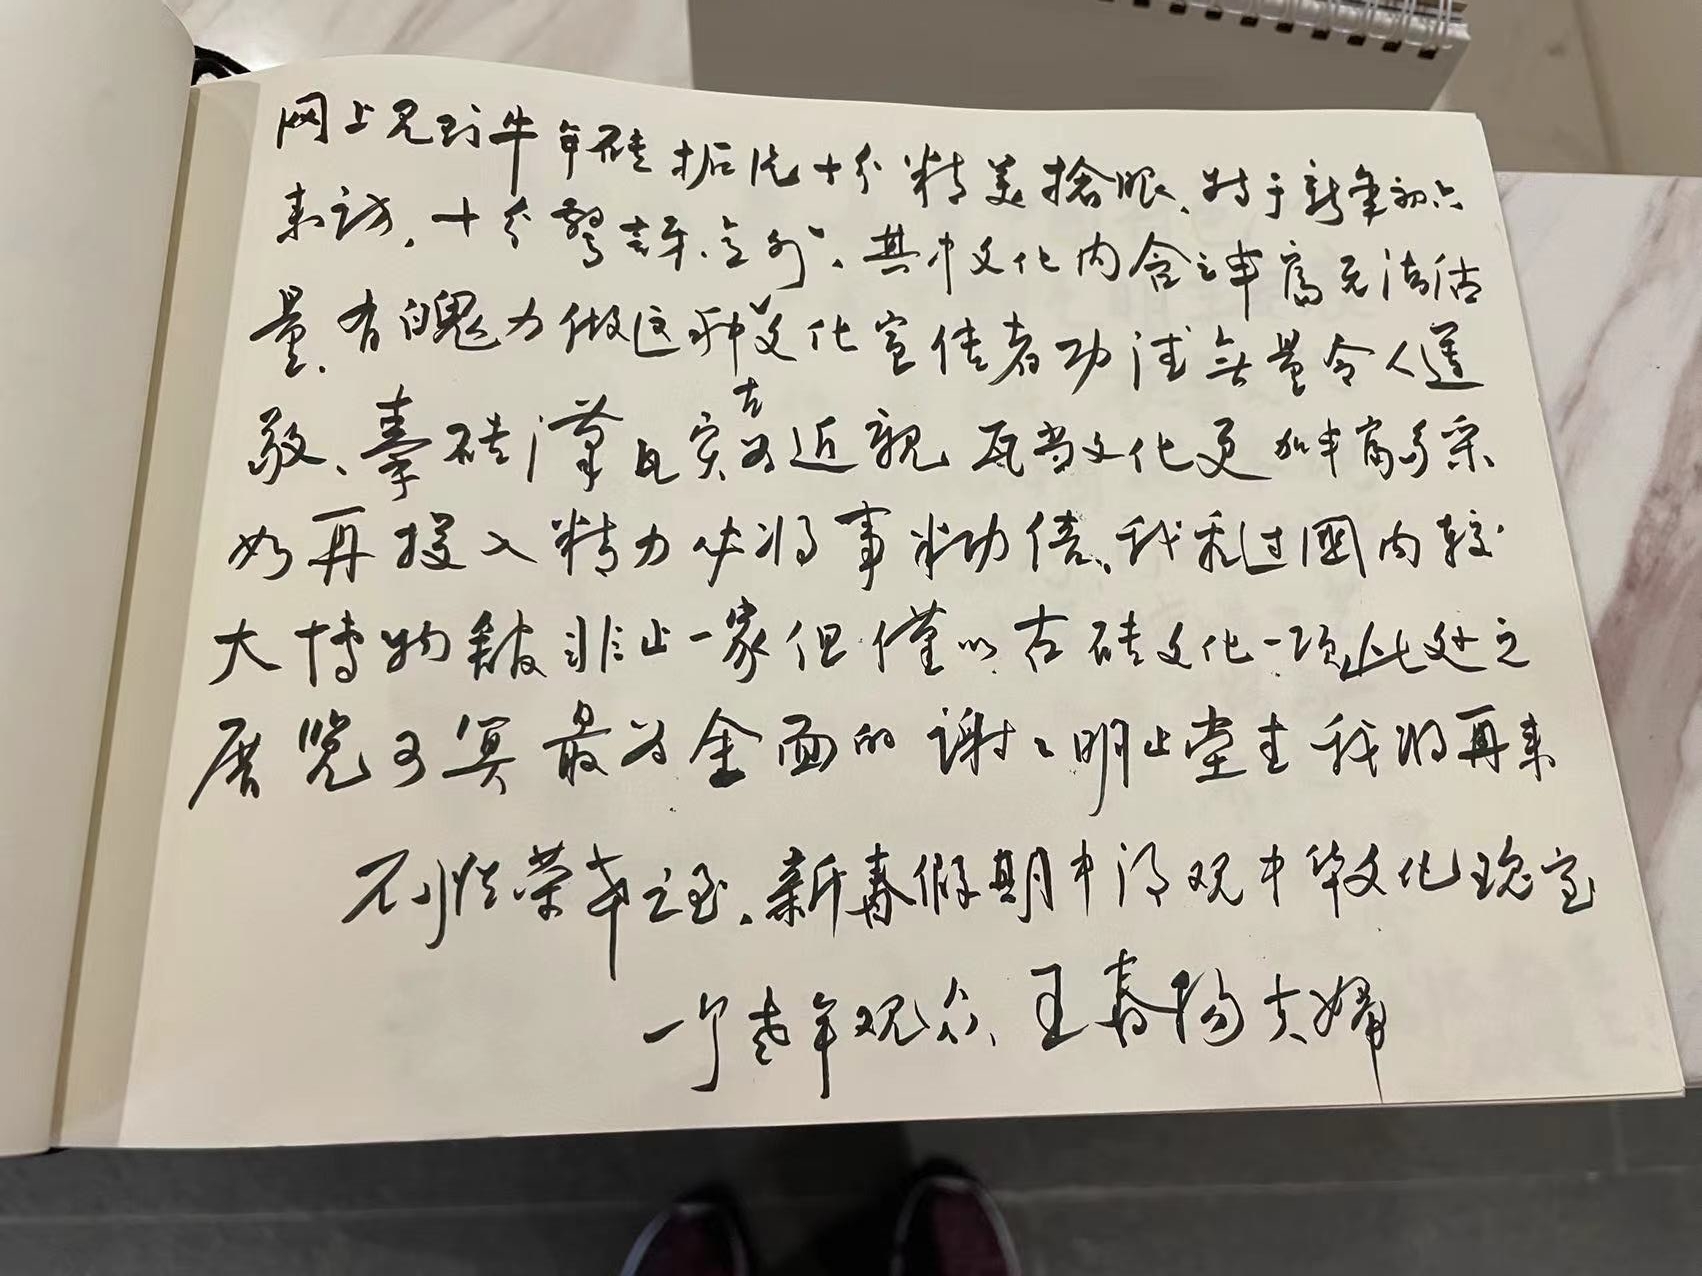 网上见到牛年砖拓片十分精美抢眼、特于新年初六
来访，十分惊讶、意外。其中文化内含之丰富无法估
量、有魄力做这种文化宣传者功德无量令人道
敬、秦砖汉瓦实古为近亲 瓦当文化更加丰富多采
如再投入精力必将事半功倍、我看过国内较
大博物馆非止一家但仅以古砖文化一项此处之
展览可算最为全面的 谢谢明止堂主 我将再来
不胜荣幸之至、新春假期中得观中华文化瑰宝
一个老年观众、王春杨夫妇